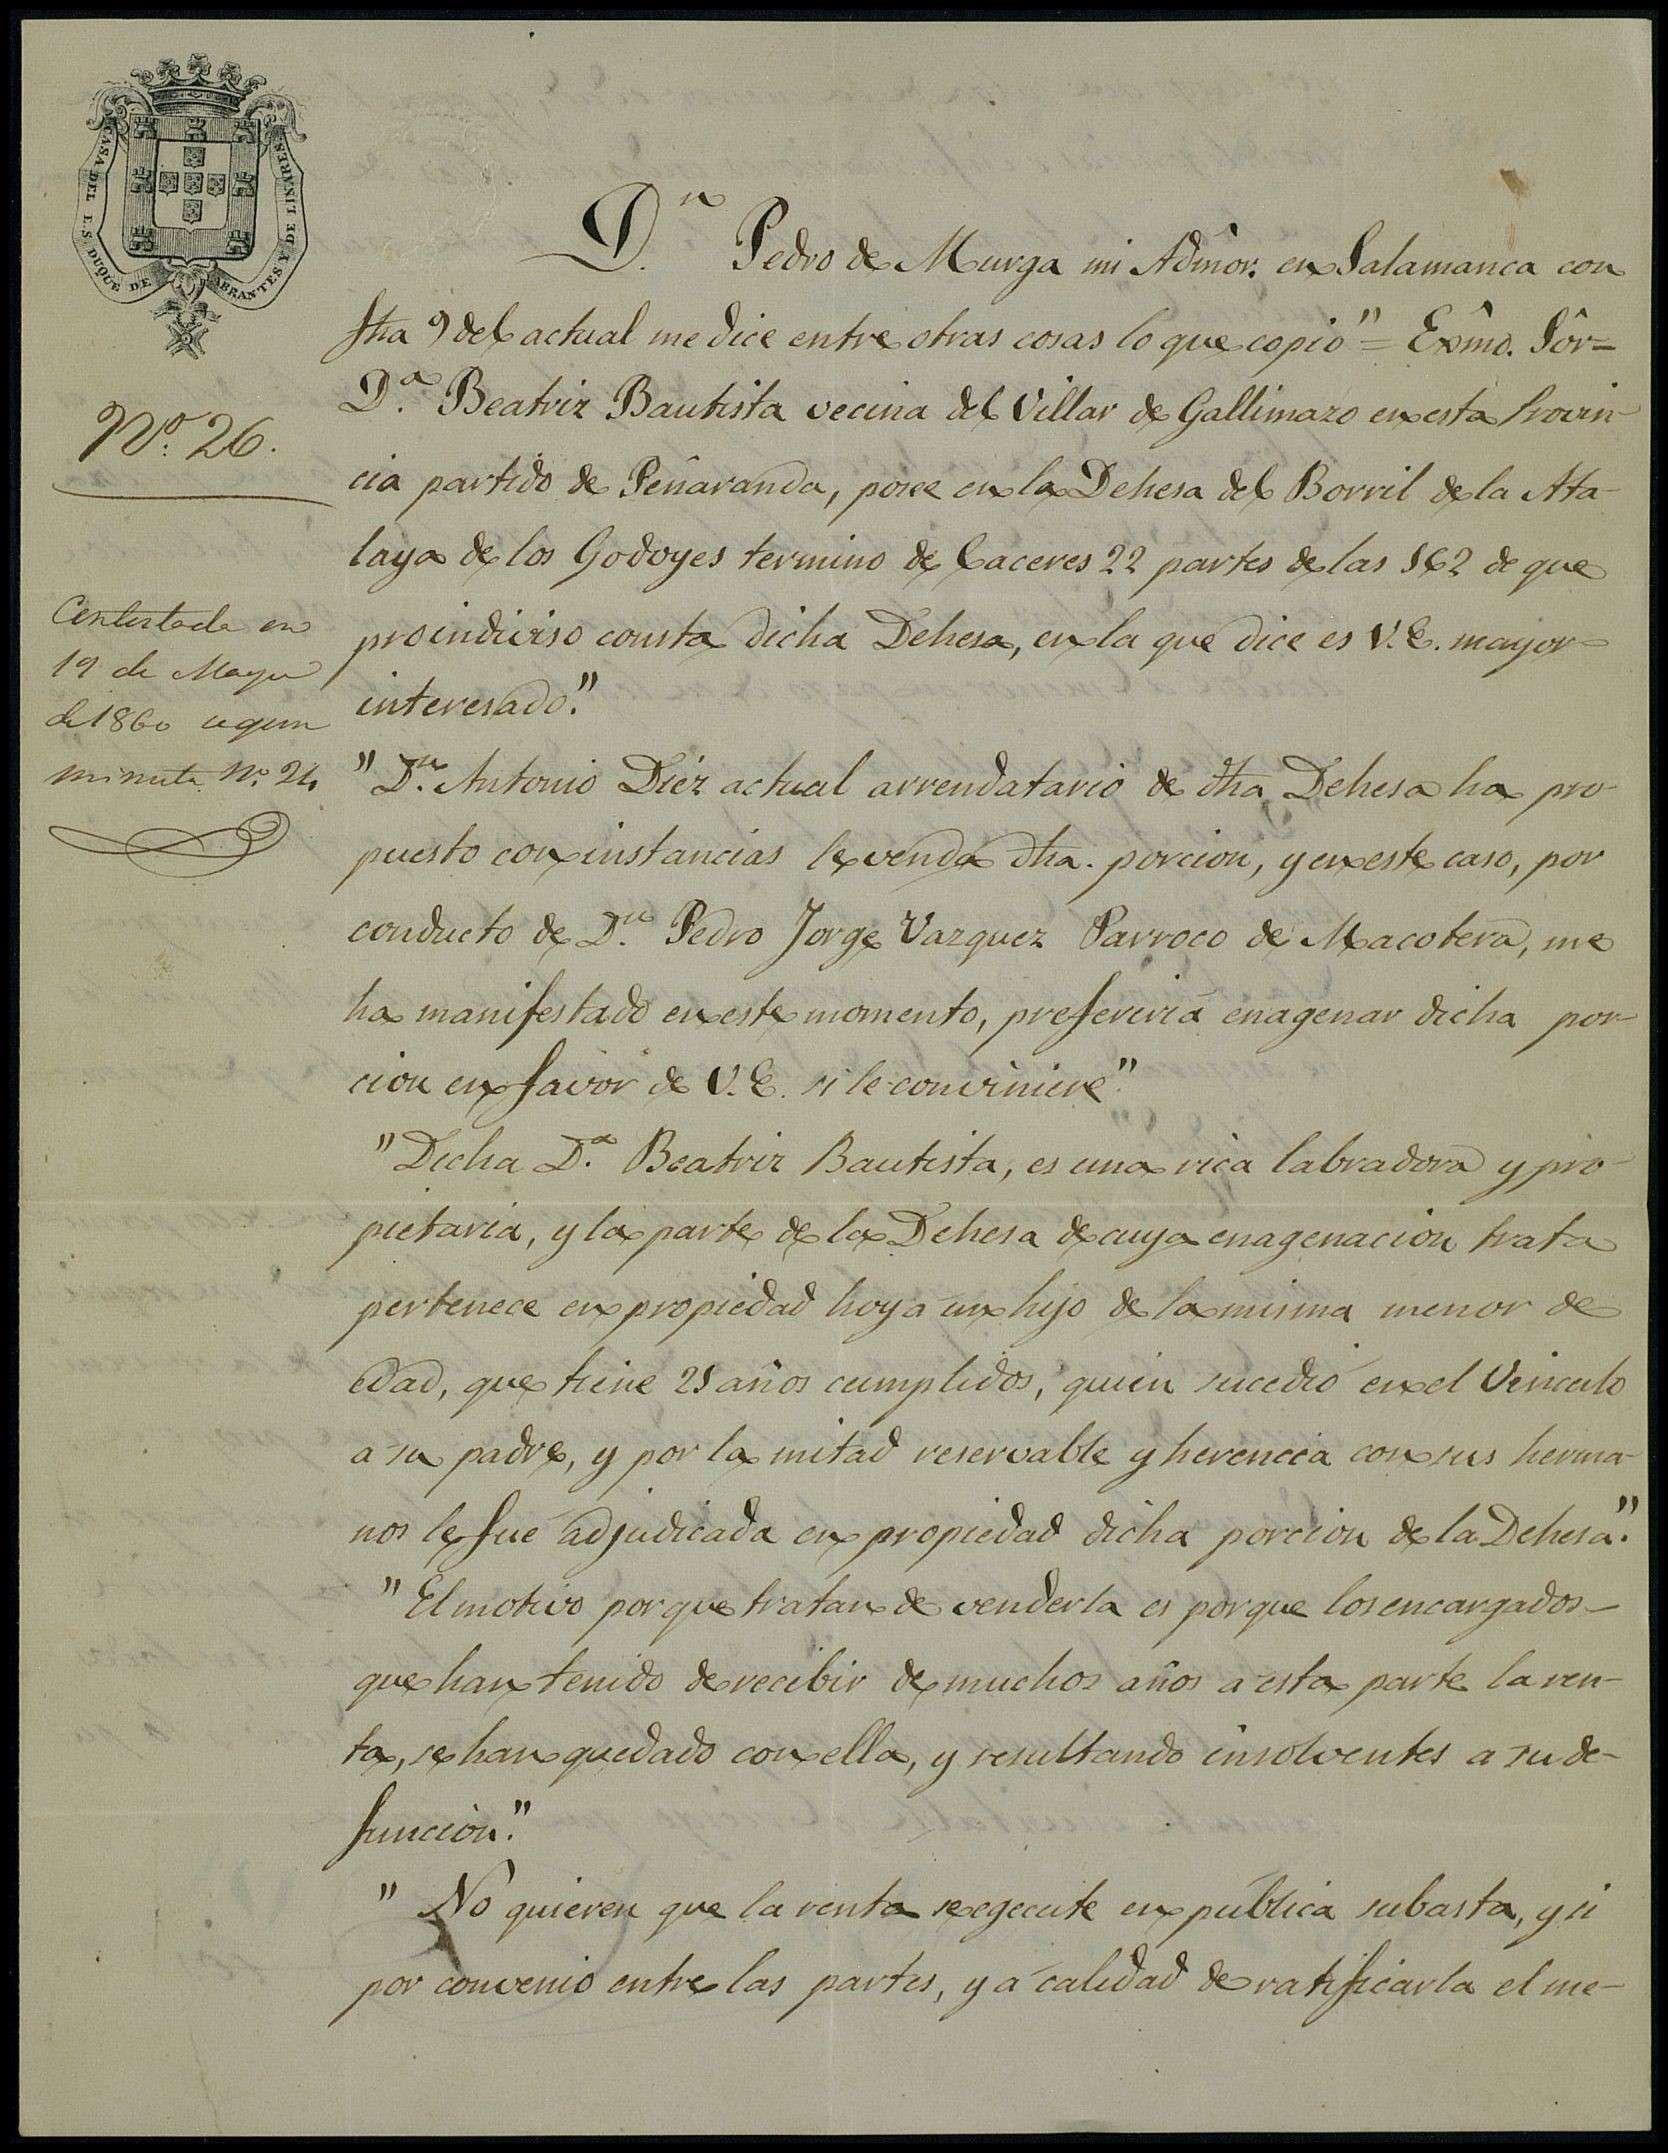 CASA DEL E.S. DUQUE DE ABRANTES Y DE LINARES
Nº 26.
Contestada en
19 de Mayo
de 1860 segun
minuta Nº 24.
D.n Pedro de Murga mi Admôr. en Salamanca con
fha 9 del actual me dice entre otras cosas lo que copio" = Exmô. Sôr=
D.ª Beatriz Bautista vecina del Villar de Gallimazo en esta Provin-
cia partido de Peñaranda, posee en la Dehesa del Borril de la Ata-
laya de los Godoyes termino de Caceres 22 partes de las 162 de que
proindiviso consta dicha Dehesa, en la que dice es V.E. mayor
interesado."
"D.n Antonio Diéz actual arrendatario de dha Dehesa ha pro-
puesto con instancias le venda dha. porcion, y en este caso, por
conducto de D.n Pedro Jorge Vazquez Parroco de Macotera, me
ha manifestado en este momento, preferiria enagenar dicha por-
cion en favor de V.E. si le conviniere"
"Dicha D.ª Beatriz Bautista, es una rica labradora y pro-
pietaria, y la parte de la Dehesa de cuya enagenacion trata
pertenece en propiedad hoy a un hijo de la misma menor de
edad, que tiene 21 años cumplidos, quien sucedió en el Vinculo
a su padre, y por la mitad reservable y herencia con sus herma-
nos le fue adjudicada en propiedad dicha porcion de la Dehesa."
"El motivo porque tratan de venderla es porque los encargados
que han tenido de recibir de muchos años a esta parte la ren-
ta, se han quedado con ella, y resultando insolventes a su de-
funcion."
"No quieren que la venta se egecute en pública subasta, y si
por convenio entre las partes, y a calidad de ratificarla el me-